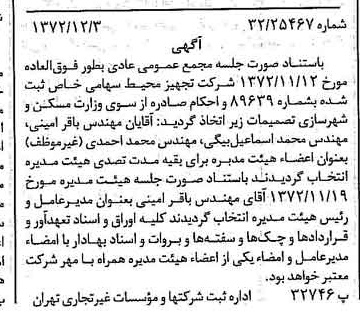 شماره ۳۲/۲۵۴۶۷ ۱۳۷۲/۱۲/۳
آگهی
باستناد صورت جلسه مجمع عمومی عادی بطور فوق‌العاده
مورخ ۱۳۷۲/۱۱/۱۲ شرکت تجهیز محیط سهامی خاص ثبت
شده بشماره ۸۹۶۳۹ و احکام صادره از سوی وزارت مسکن و
شهرسازی تصمیمات زیر اتخاذ گردید: آقایان مهندس باقر امینی،
مهندس محمد اسماعیل‌بیگی، مهندس محمد احمدی (غیرموظف)
بعنوان اعضاء هیئت مدیره برای بقیه مدت تصدی هیئت مدیره
انتخاب گردیدند باستناد صورت جلسه هیئت مدیره مورخ
۱۳۷۲/۱۱/۱۹ آقای مهندس باقر امینی بعنوان مدیرعامل و
رئیس هیئت مدیره انتخاب گردیدند کلیه اوراق و اسناد تعهدآور و
قراردادها و چک‌ها و سفته‌ها و بروات و اسناد بهادار با امضاء
مدیرعامل و امضاء یکی از اعضاء هیئت مدیره همراه با مهر شرکت
معتبر خواهد بود.
پ ۳۲۷۴۶ اداره ثبت شرکتها و مؤسسات غیرتجاری تهران